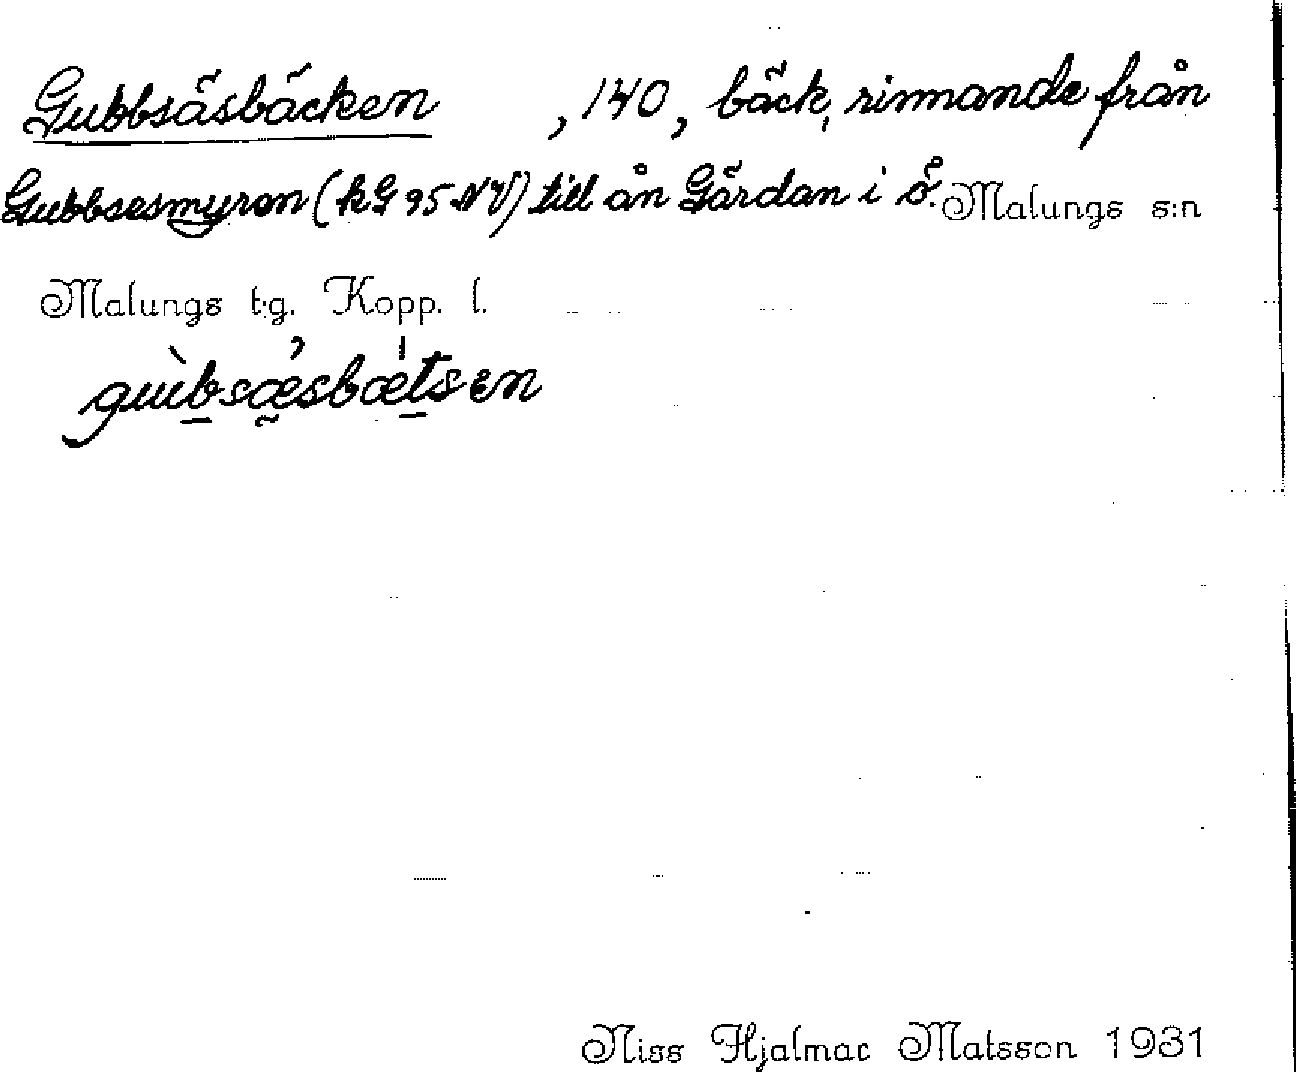 Gubbsäsbäcken , 140, bäck, rinnande från
Gubbsesmyran (kG 95 NV) till ån Gärdan i ö. Malungs s:n
Malungs t:g. Kopp. l.
Niss Hjalmar Matsson 1931